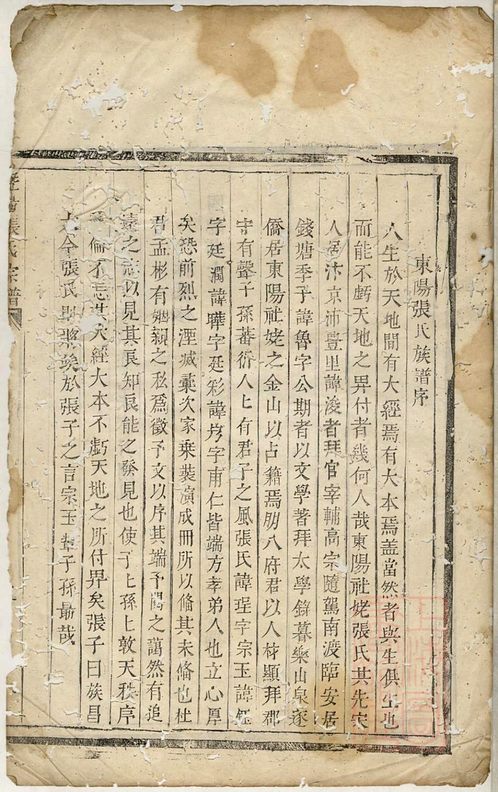 東陽張氏族譜序
人生於天地間有大經焉有大本焉蓋當然者與生俱生也
而能不虧天地之畀付者幾何人哉東陽社姥張氏其先宋
人居汴京沛豊里諱浚者拜官宰輔高宗隨駕南渡臨安居
錢塘季子諱魯字公期者以文學著拜太學錄暮樂山泉逐
僑居東陽社姥之金山以占籍焉朋八府君以人材顯拜郡
守有聲子孫蕃衍人上有君子之風張氏諱珵字宗玉諱
字廷瀾諱曄字廷彩諱字甫仁皆端方孝弟人也立心厚
矣恐前烈之湮滅乗次家乗裝演成冊所以俻其未俻也杜
君孟彬有姻親之私爲徵予文以序其端予閱之藹然有追
遠之志以見其良知良能之發見也使子上孫上敦天秩序
倫不忘其大經大本不虧天地之所付畀矣張子曰族昌
大今張氏於張子之言宗玉輩子孫勗哉
張氏宗譜